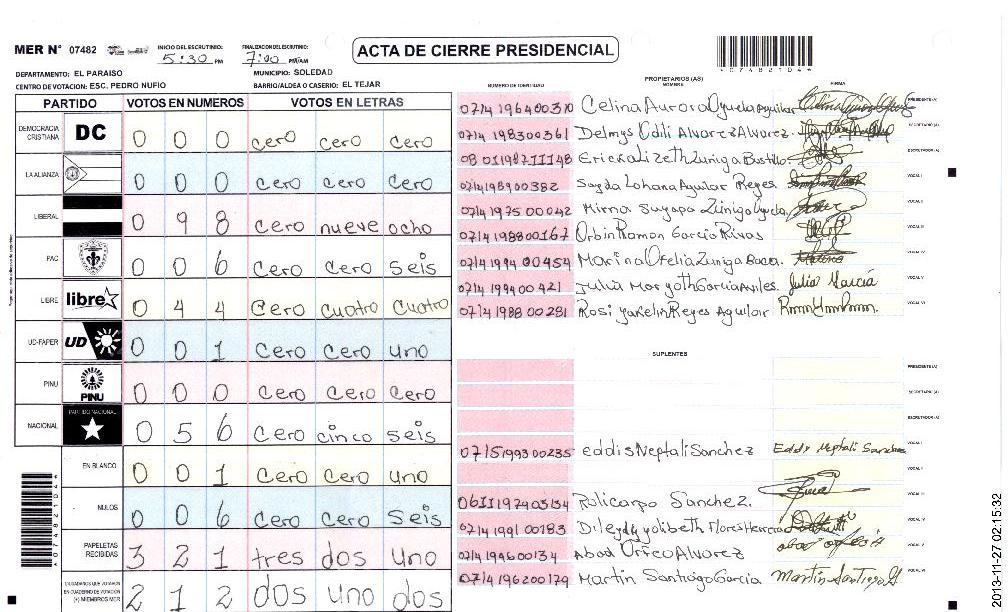 MER N° 07482
INICIO DEL ESCRUTINIO: 5:30 PM
FINALIZACION DEL ESCRUTINIO: 7:00 PM/AM
ACTA DE CIERRE PRESIDENCIAL
DEPARTAMENTO: EL PARAISO
MUNICIPIO: SOLEDAD
CENTRO DE VOTACION: ESC. PEDRO NUFIO
BARRIO/ALDEA O CASERIO: EL TEJAR
PARTIDO VOTOS EN NUMEROS VOTOS EN LETRAS
DEMOCRACIA CRISTIANA DC 0 0 0 cero cero cero
LA ALIANZA 0 0 0 cero cero cero
LIBERAL 0 9 8 cero nueve ocho
PAC 0 0 6 cero cero seis
LIBRE libre 0 4 4 cero cuatro cuatro
UD-FAPER UD 0 0 1 cero cero uno
PINU PINU 0 0 0 cero cero cero
NACIONAL PARTIDO NACIONAL 0 5 6 cero cinco seis
EN BLANCO 0 0 1 cero cero uno
NULOS 0 0 6 cero cero seis
PAPELETAS RECIBIDAS 3 2 1 tres dos uno
CIUDADANOS QUE VOTARON EN CUADERNO DE VOTACION (+) MIEMBROS MER 2 1 2 dos uno dos
PROPIETARIOS (AS)
NUMERO DE IDENTIDAD FIRMA
0714 1964 00310 Celina Aurora Oyuela Aguilar PRESIDENTE (A)
0714 1983 00361 Delmys Odili Alvarez Alvarez. SECRETARIO (A)
Ericka Lizeth Zuniga Bustillo ESCRUTADOR (A)
0714 1989 00382 Sayda Lohana Aguilar Reyes VOCAL I
0714 1975 00042 Mirna Suyapa Zúniga Oyuela VOCAL II
0714 1988 00167 Orbin Ramon Garcia Rivas VOCAL III
0714 1994 00454 Marina Ofelia Zuniga Baca. VOCAL IV
0714 1994 00421 Julia Maryoth Garcia Aviles. Julia García VOCAL V
0714 1988 00281 Rosi yakelin Reyes Aguilar VOCAL VI
SUPLENTES
PRESIDENTE (A)
SECRETARIO (A)
ESCRUTADOR (A)
0715 1993 00235 eddis Neptali Sanchez Eddy Neptali Sanchez VOCAL I
VOCAL II
0611 1974 03134 Policarpo Sanchez. VOCAL III
0714 1991 00183 Flores Herrera VOCAL IV
0714 1996 00134 Abad Orfeo Alvarez VOCAL V
0714 1962 00179 Martin Santiago Garcia Martin Santiago G VOCAL VI
2013-11-27 02:15:32